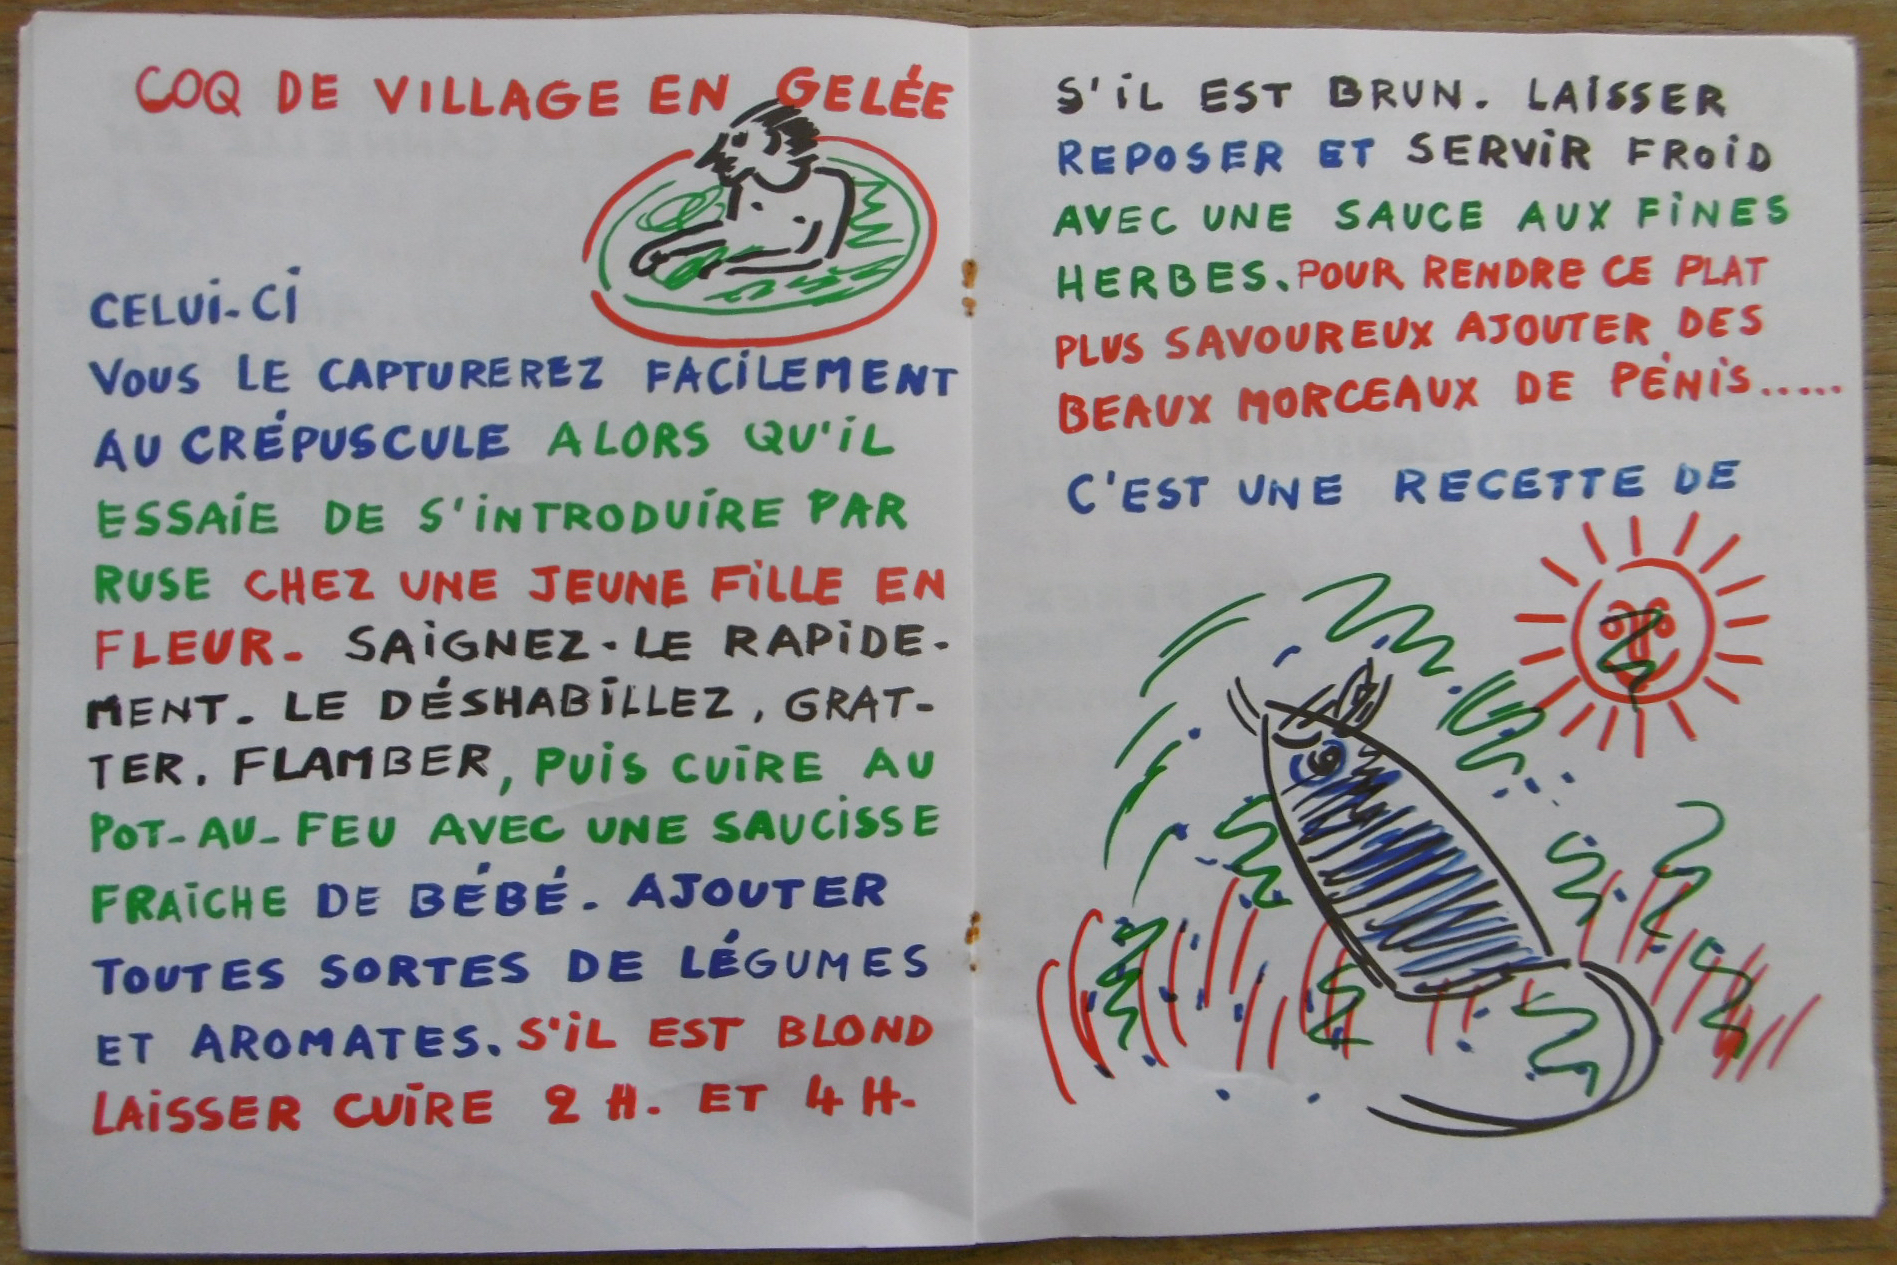 COQ DE VILLAGE EN GELÉE
CELUI-CI
VOUS LE CAPTUREREZ FACILEMENT
AU CRÉPUSCULE ALORS QU'IL
ESSAIE DE S'INTRODUIRE PAR
RUSE CHEZ UNE JEUNE FILLE EN
FLEUR. SAIGNEZ-LE RAPIDE-
MENT. LE DÉSHABILLEZ, GRAT-
TER. FLAMBER, PUIS CUIRE AU
POT-AU-FEU AVEC UNE SAUCISSE
FRAICHE DE BÉBÉ. AJOUTER
TOUTES SORTES DE LÉGUMES
ET AROMATES. S'IL EST BLOND
LAISSER CUIRE 2 H. ET 4 H.
S'IL EST BRUN. LAISSER
REPOSER ET SERVIR FROID
AVEC UNE SAUCE AUX FINES
HERBES. POUR RENDRE CE PLAT
PLUS SAVOUREUX AJOUTER DES
BEAUX MORCEAUX DE PÉNIS.....
C'EST UNE RECETTE DE